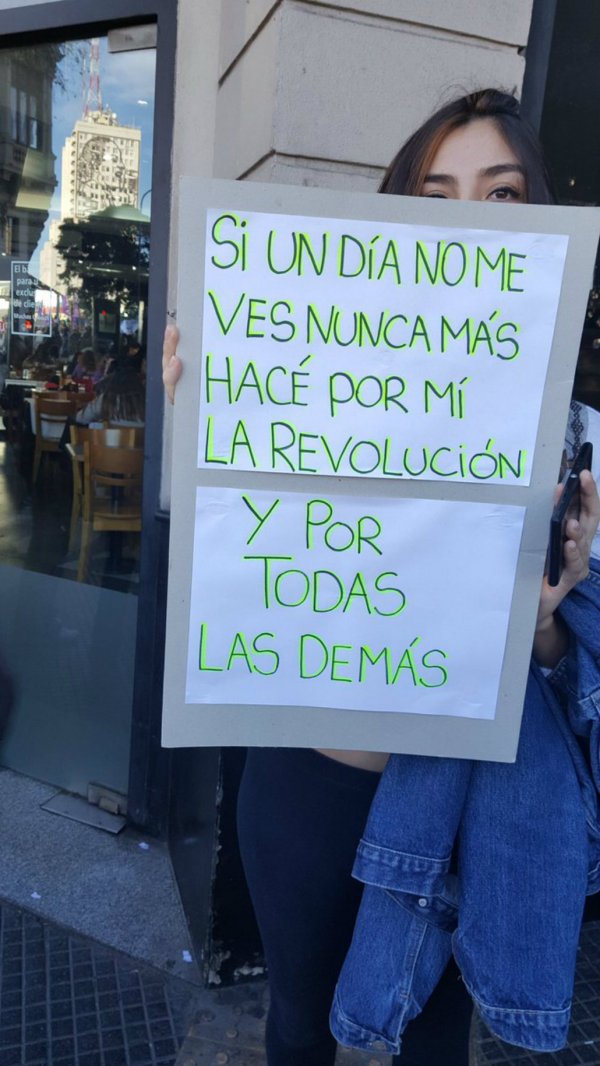 SI UN DÍA NO ME
VES NUNCA MÁS
HACÉ POR MÍ
LA REVOLUCIÓN
Y POR
TODAS
LAS DEMÁS
El ba
para u
exclus
de clie